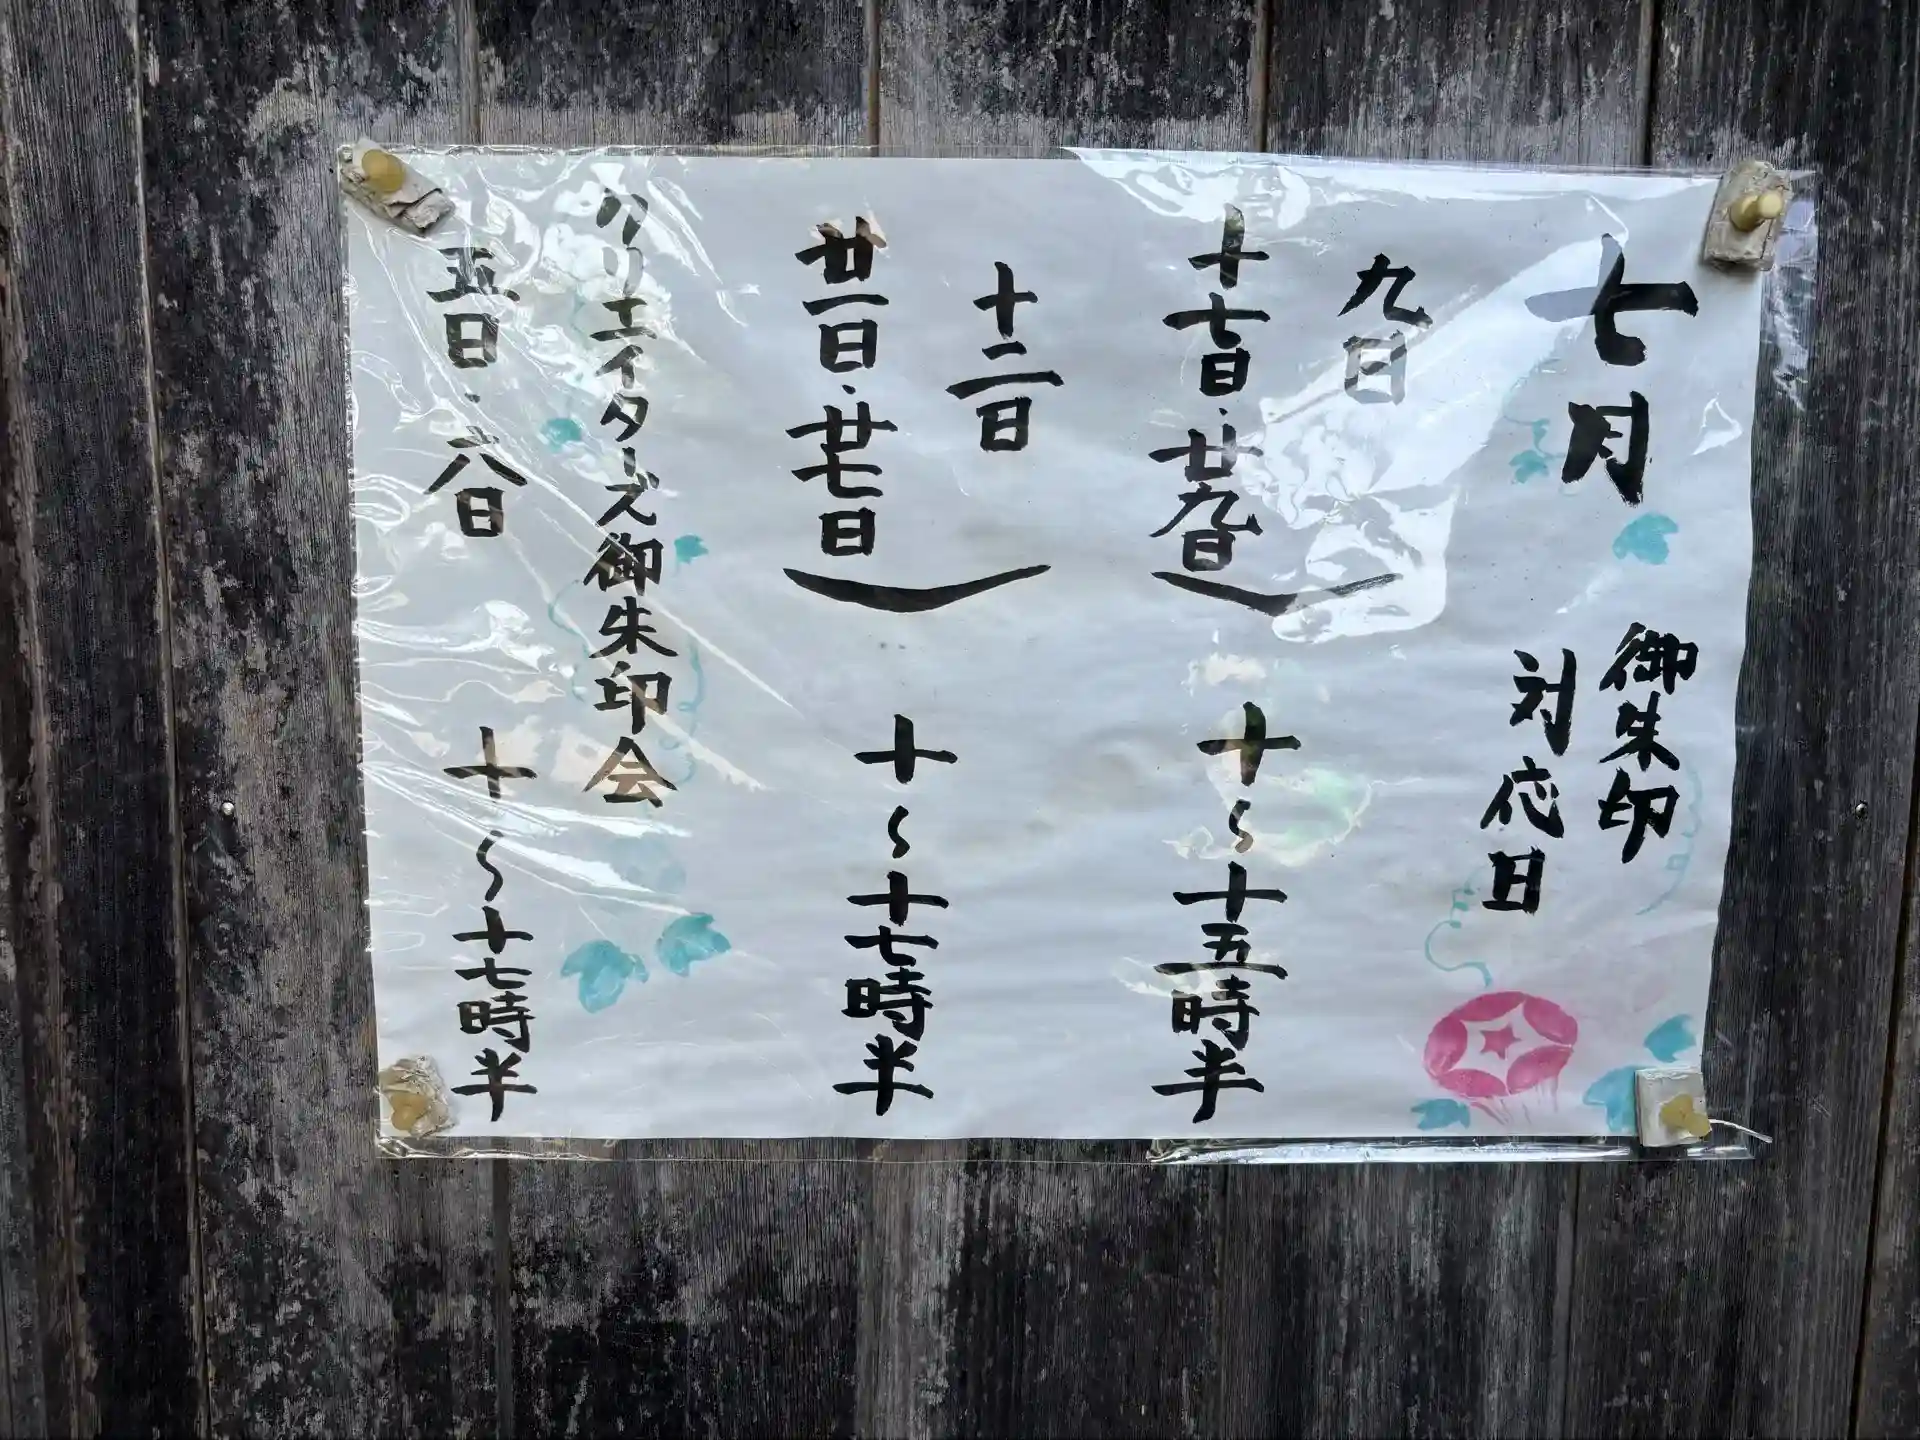 七月
御朱印
対応日
九日
十七日・廿九日
十～十五時半
十二日
廿一日・廿七日
十～十七時半
クリエイターズ御朱印会
五日・六日
十～十七時半